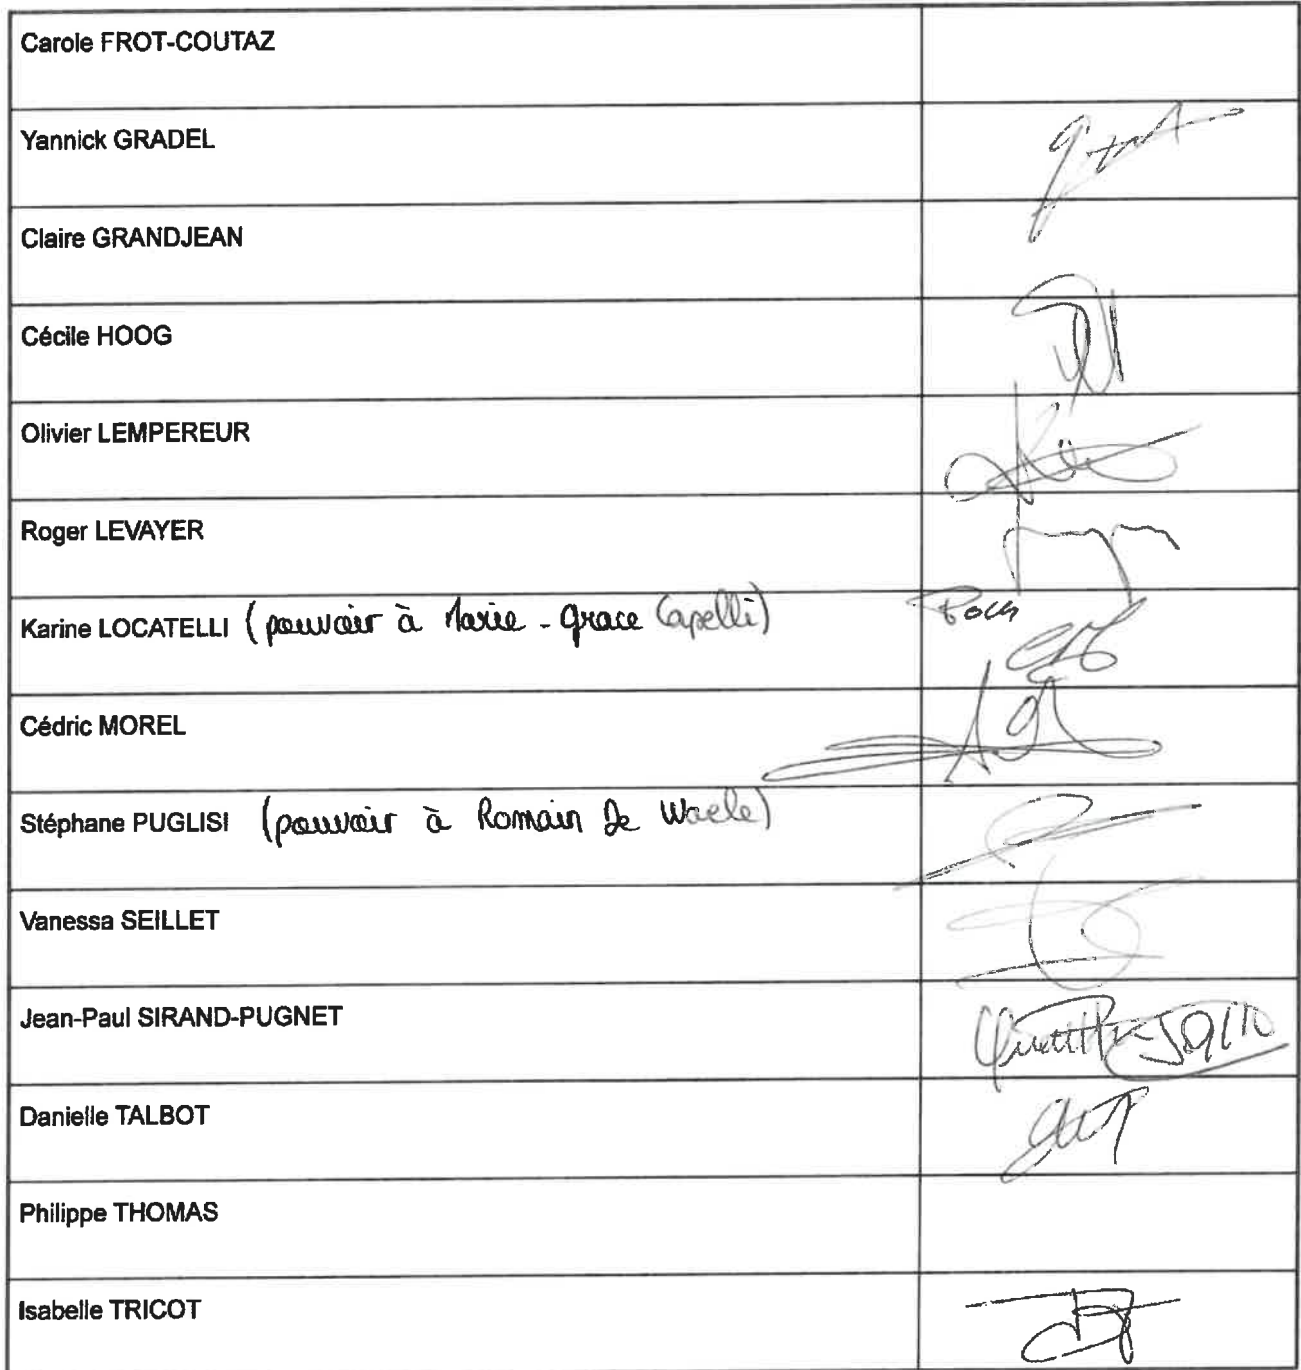 Carole FROT-COUTAZ
Yannick GRADEL
Claire GRANDJEAN
Cécile HOOG
Olivier LEMPEREUR
Roger LEVAYER
Karine LOCATELLI (pouvoir à Marie-Grace Capelli)
Cédric MOREL
Stéphane PUGLISI (pouvoir à Romain De Waele)
Vanessa SEILLET
Jean-Paul SIRAND-PUGNET
Danielle TALBOT
Philippe THOMAS
Isabelle TRICOT